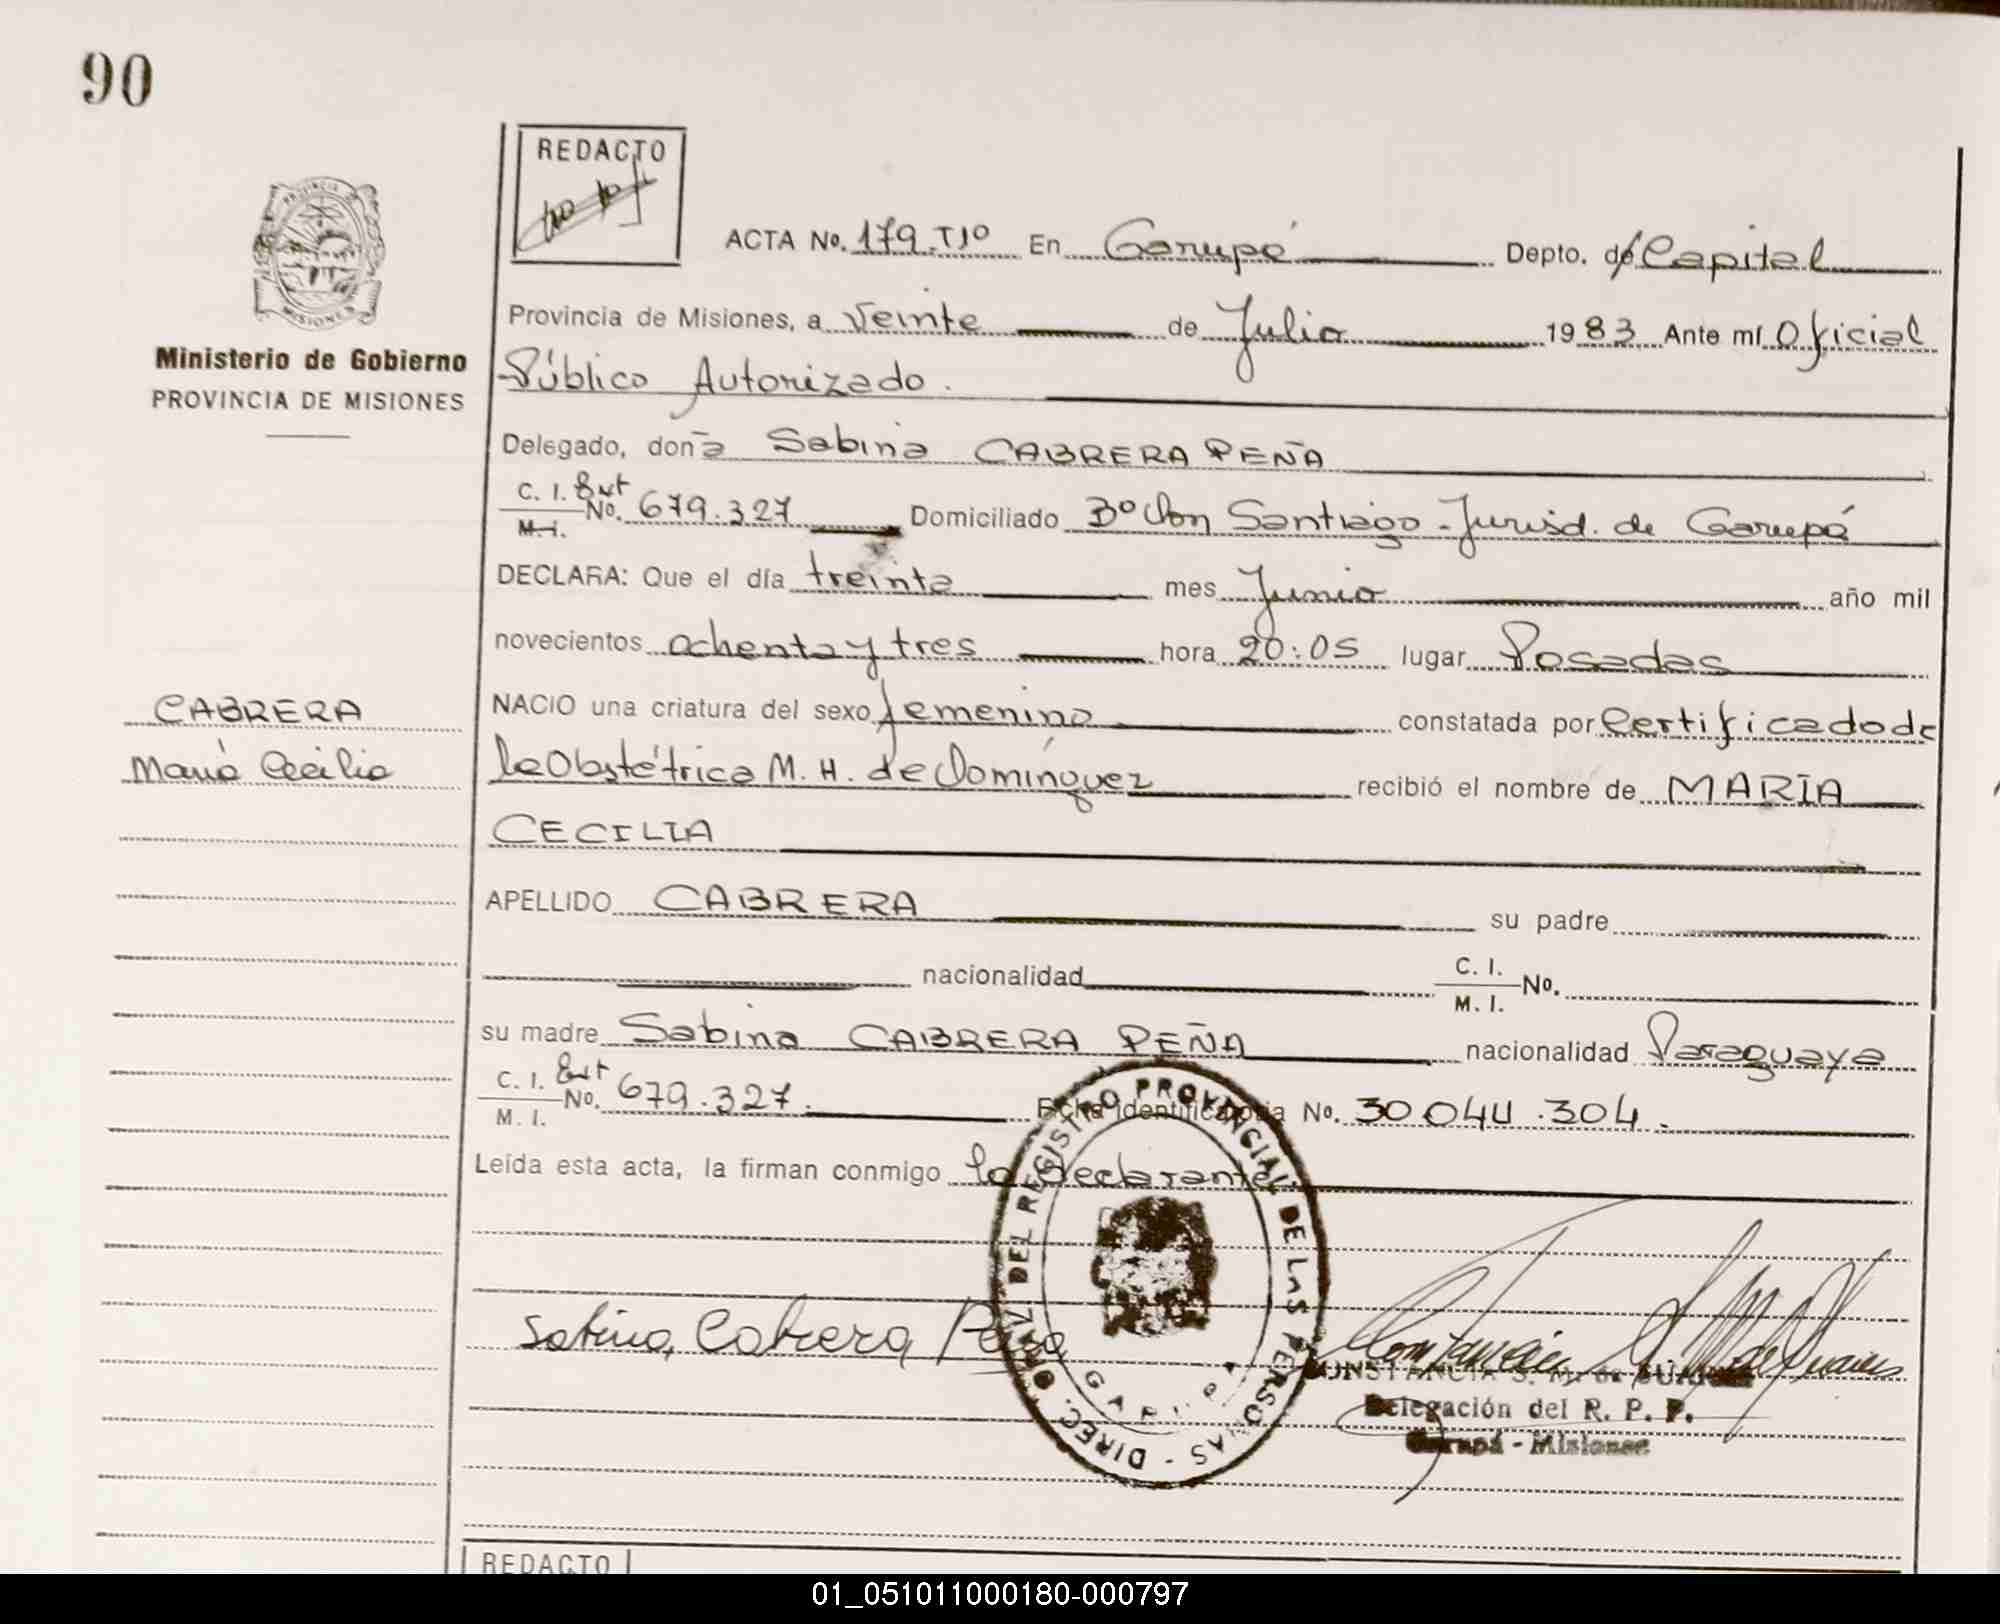 90
REDACTO
ACTA No. 179.TIº En Garupá Depto. de Capital
Provincia de Misiones, a veinte de Julio 1983 Ante mí Oficial
Ministerio de Gobierno
PROVINCIA DE MISIONES
Público Autorizado.
Delegado, doña Sabina CABRERA PEÑA
C. I. Ext
M. I. No. 679.327 Domiciliado Bº Don Santiago - Jurisd. de Garupá
DECLARA: Que el día treinta mes Junio año mil
novecientos ochenta y tres hora 20:05 lugar Posadas
CABRERA
NACIO una criatura del sexo femenino constatada por Certificado de
María Cecilia
la Obstétrica M. H. de Domínguez recibió el nombre de MARÍA
CECILIA
APELLIDO CABRERA su padre
nacionalidad C. I.
M. I. No.
su madre Sabina CABRERA PEÑA nacionalidad Paraguaya
C. I. Ext
M. I. No. 679.327. Ficha identificatoria No. 30.044.304.
Leída esta acta, la firman conmigo la declarante
DIREC. GRAL. DEL REGISTRO PROVINCIAL DE LAS PERSONAS -
GARUPA
Sabina Cabrera Peña
CONSTANCIA S. M. de SUAREZ
Delegación del R. P. P.
Garupá - Misiones
REDACTO
01_051011000180-000797